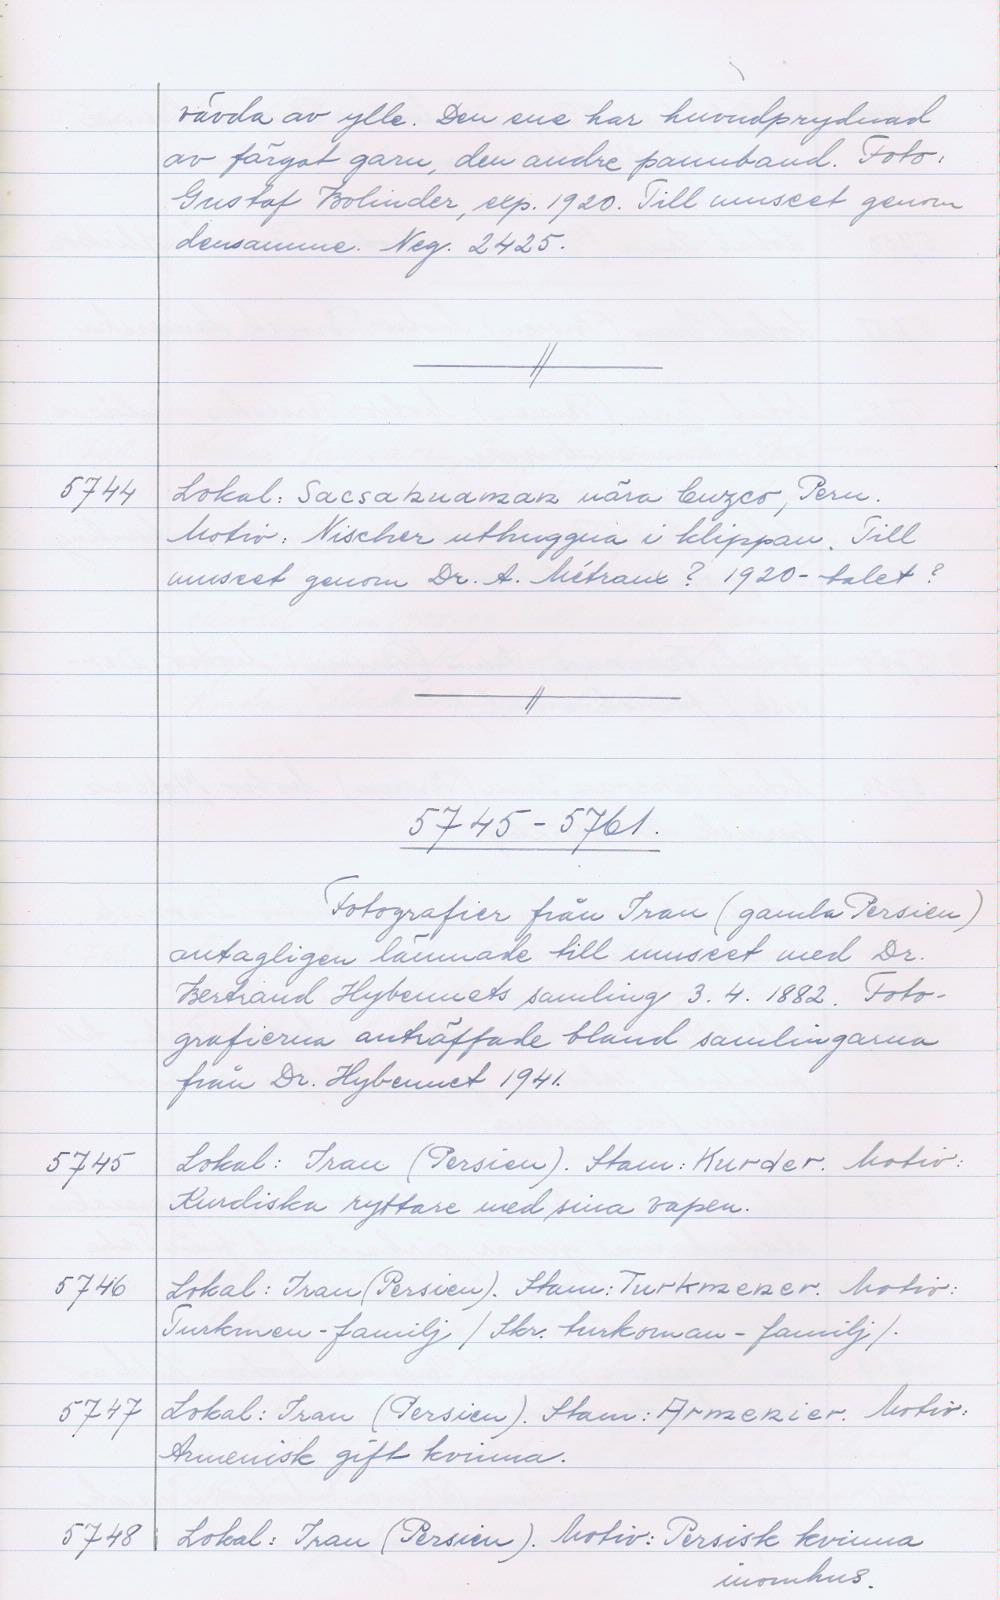 vävda av ylle. Den ene har huvudprydnad
av färgat garn, den andre pannband. Foto:
Gustaf Bolinder, exp. 1920. Till museet genom
densamme. Neg. 2425.
5744 Lokal: Sacsahuaman nära Cuzco, Peru.
Motiv: Nischer uthuggna i klippan. Till
museet genom Dr. A. Métraux? 1920-talet?
5745-5761.
Fotografier från Iran (gamla Persien)
antagligen lämnade till museet med Dr.
Bertrand Hybennets samling 3.4.1882. Foto-
grafierna anträffade bland samlingarna
från Dr. Hybennet 1941.
5745 Lokal: Iran (Persien). Stam: Kurder. Motiv:
Kurdiska ryttare med sina vapen.
5746 Lokal: Iran (Persien). Stam: Turkmener. Motiv:
Turkmen-familj / Skr. turkoman-familj/.
5747 Lokal: Iran (Persien). Stam: Armenier. Motiv:
Armenisk gift kvinna.
5748 Lokal: Iran (Persien). Motiv: Persisk kvinna
inomhus.